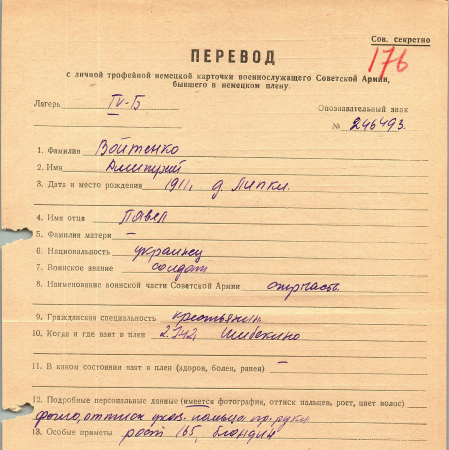 Сов. секретно
176
ПЕРЕВОД
с личной трофейной немецкой карточки военнослужащего Советской Армии,
бывшего в немецком плену.
Лагерь IV-Б
Опознавательный знак
№ 246493.
1. Фамилия Войтенко
2. Имя Дмитрий
3. Дата и место рождения 1911, д Липки.
4. Имя отца Павел
5. Фамилия матери –
6. Национальность украинец
7. Воинское звание солдат
8. Наименование воинской части Советской Армии
9. Гражданская специальность крестьянин.
10. Когда и где взят в плен Шибекино
11. В каком состоянии взят в плен (здоров, болен, ранен) –
12. Подробные персональные данные (имеется фотография, оттиск пальцев, рост, цвет волос)
фото, оттиск указ. пальца пр. руки
13. Особые приметы рост 165, блондин